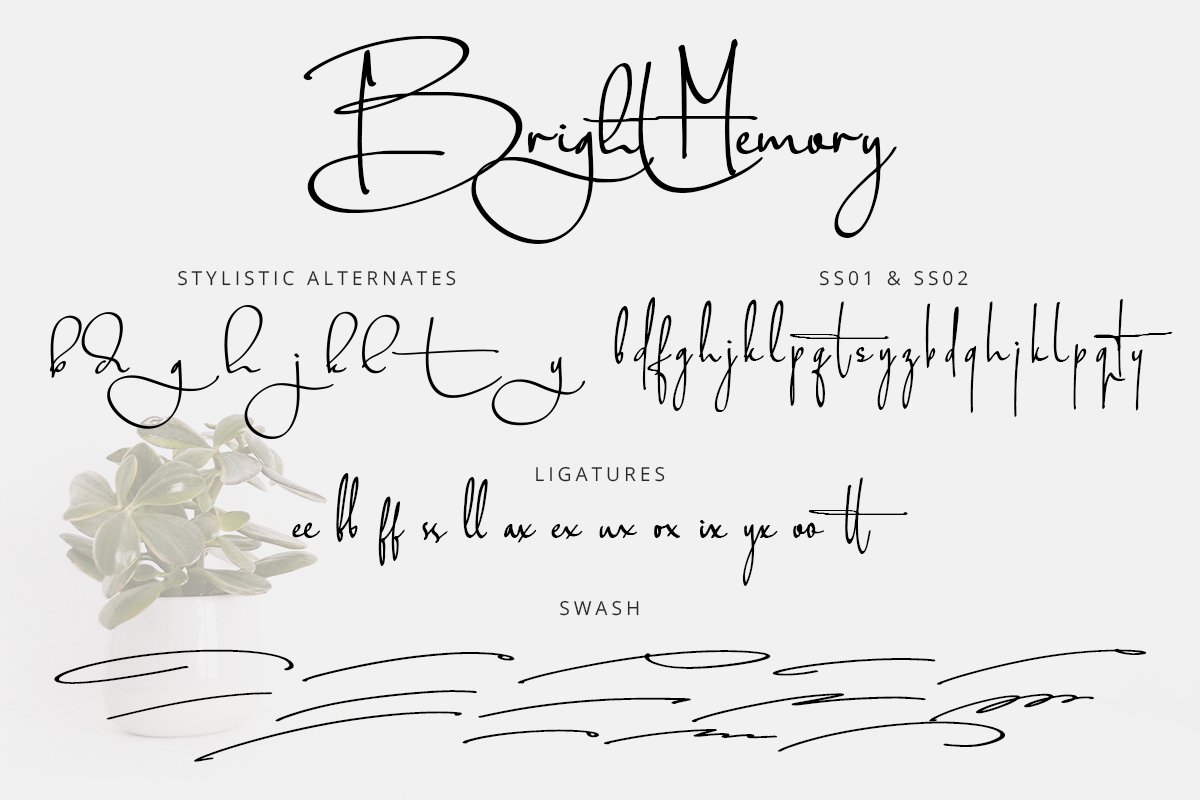 Bright Memory
STYLISTIC ALTERNATES
b d g h j k l t y
SS01 & SS02
b d f g h j k l p q t s y z b d q h j k l p q t y
LIGATURES
ee bb ff ss ll ax ex ux ox ix yx oo tt
SWASH